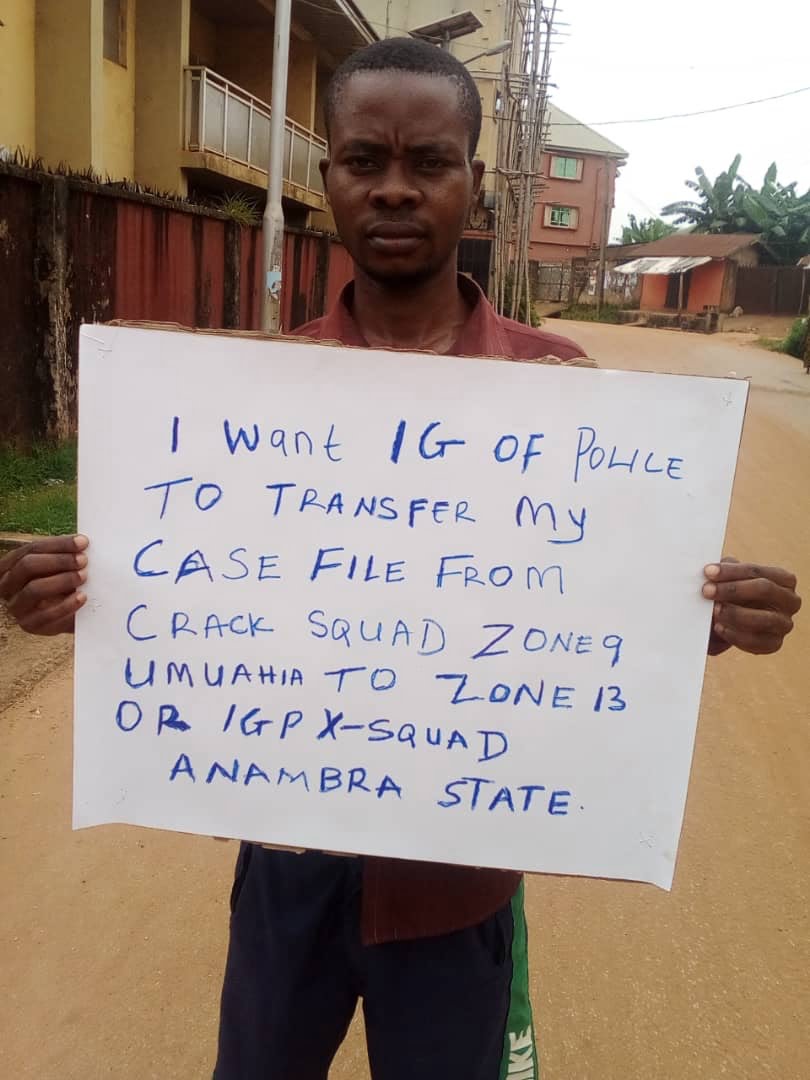 I Want IG OF POLICE
TO TRANSFER My
CASE FILE FROM
CRACK SQUAD ZONE 9
UMUAHIA TO ZONE 13
OR IGP X-SQUAD
ANAMBRA STATE.
IKE